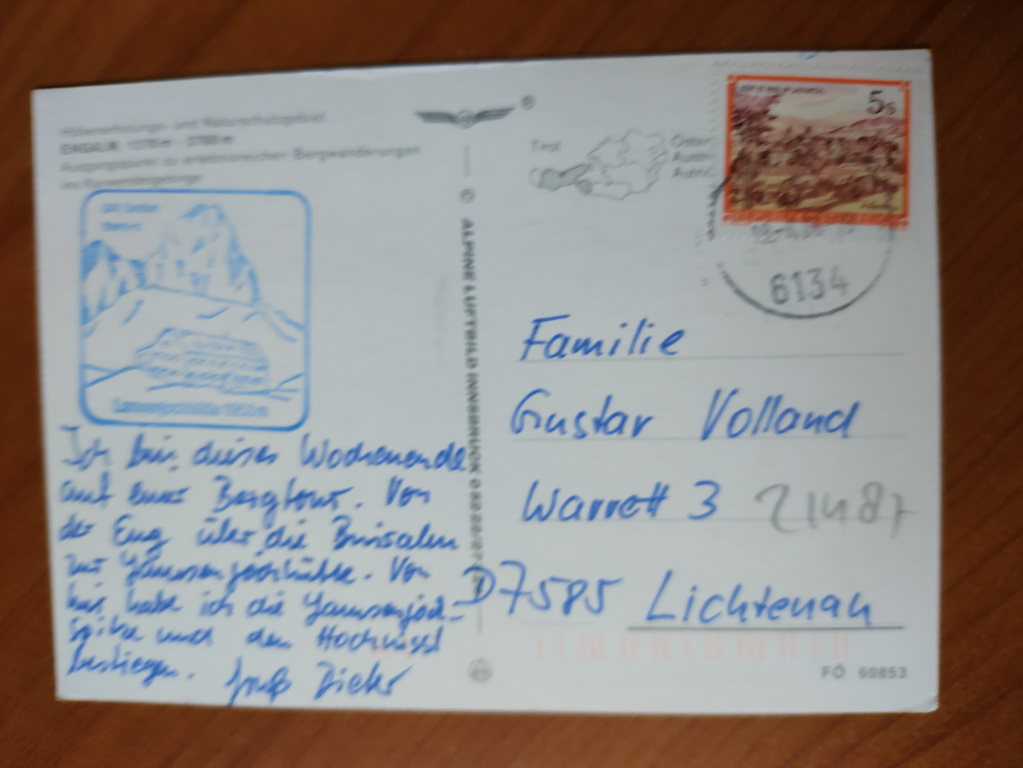 Höhenerholungs- und Naturschutzgebiet
ENGALM,
Ausgangspunkt zu erlebnisreichen Bergwanderungen
im Karwendelgebirge
®
© ALPINE LUFTBILD INNSBRUCK
Tirol
5s
6134
Lamsenjochhütte 1953 m
Ich bin dieses Wochenende
auf einer Bergtour. Von
der Eng über die Binsalm
zur Lamsenjochhütte. Von
hier habe ich die Lamsenjoch-
Spitze und den Hochnissl
bestiegen. Gruß Dieter
Familie
Gustav Volland
Warrett 3 21487
D7585 Lichtenau
FÖ 60853